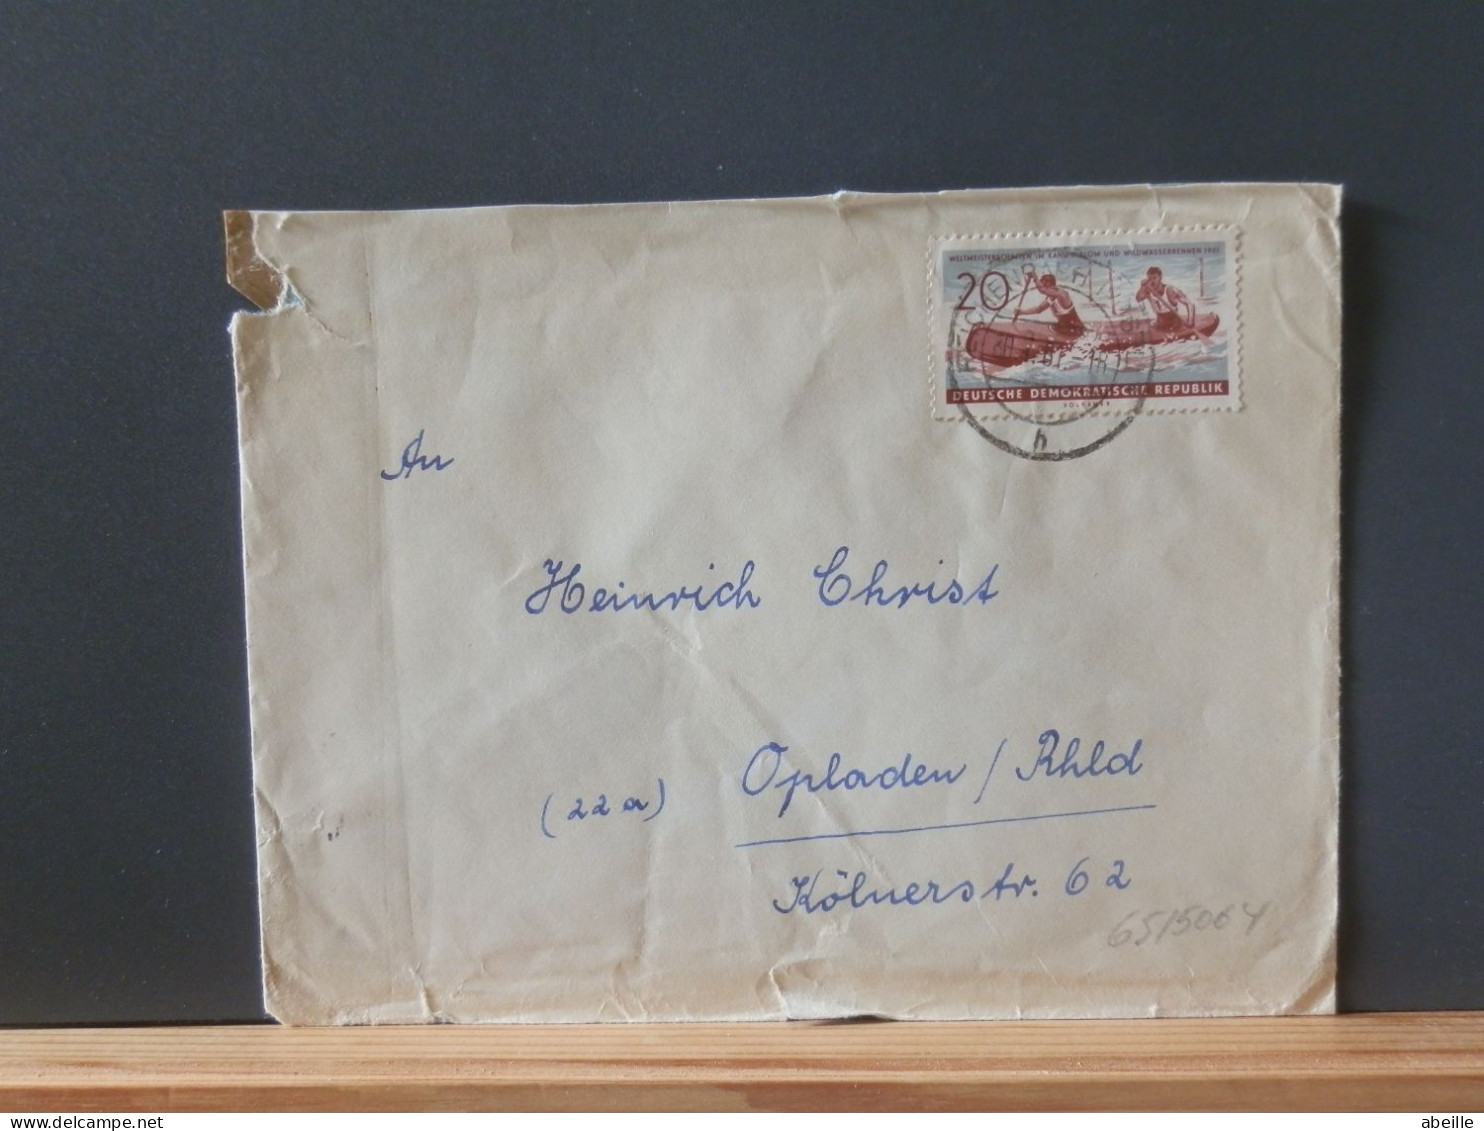 WELTMEISTERSCHAFTEN IM KANU-SLALOM UND WILDWASSERRENNEN 1961
20
DEUTSCHE DEMOKRATISCHE REPUBLIK
h
An
Heinrich Christ
(22a) Opladen / Rhld
Kölnerstr. 62
65/5064
abeille